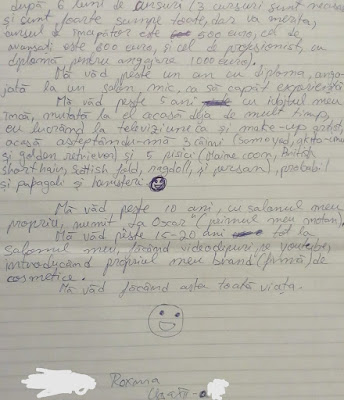 după 6 luni de cursuri (3 cursuri sunt
și sunt foarte scumpe toate, dar va merita,
cursul de începător este 500 euro, cel de
avansați este 800 euro, și cel de profesionist, cu
diplomă pentru angajare 1000 euro).
Mă văd peste un an cu diploma, anga-
jată la un salon, mic, ca să capăt experiență
Mă văd peste 5 ani cu iubitul meu
încă, mutată la el acasă deja de mult timp,
eu lucrând la televiziune ca și make-up artist,
acasă așteptându-mă 3 câini (Samoyed, akita-inu
și golden retriever) și 5 pisici (Maine coon, British
shorthair, Scottish fold, ragdoll, și persam), probabil
și papagali și hamsteri
Mă văd peste 10 ani, cu salonul meu
propriu, numit "La Oscar" (primul meu motan).
Mă văd peste 15-20 ani tot la
salonul meu, făcând videoclipuri pe youtube,
introducând propriul meu brand (firmă) de
cosmetice.
Mă văd făcând asta toată viața.
Roxana